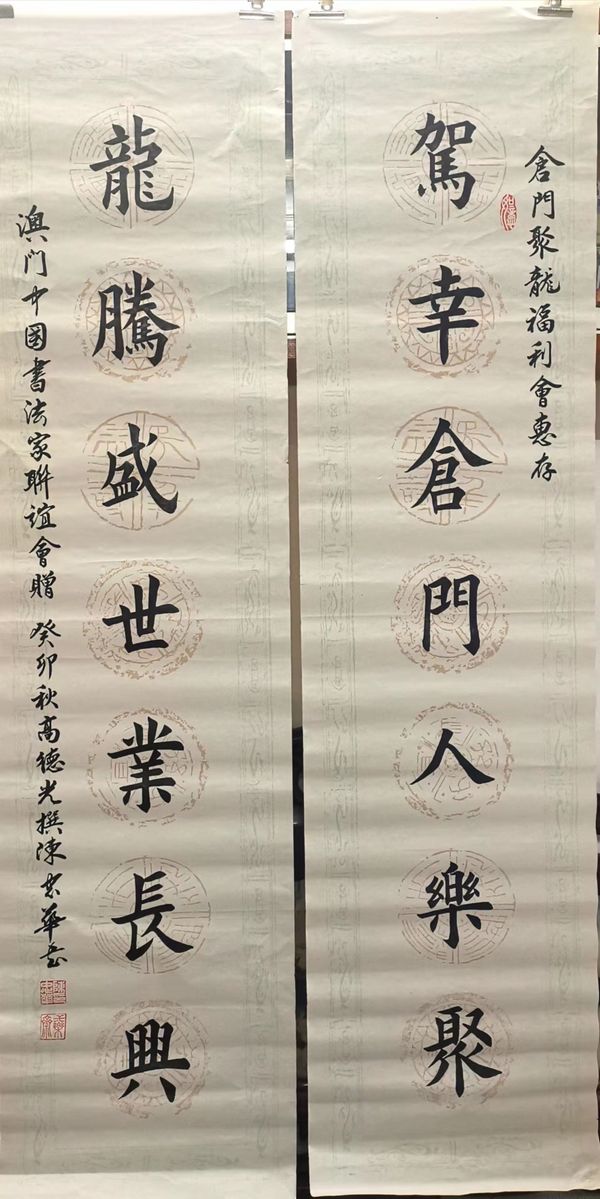 倉門聚龍福利會惠存
駕幸倉門人樂聚
龍騰盛世業長興
澳門中國書法家聯誼會贈 癸卯秋高德光撰陳華書